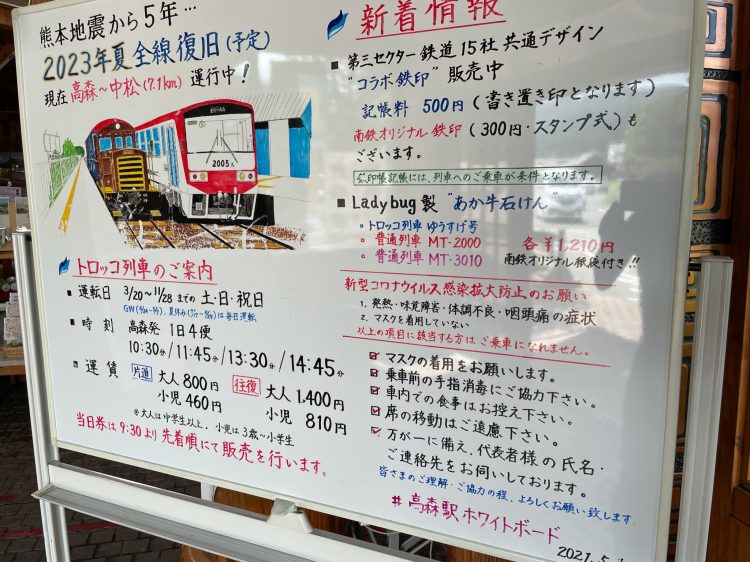 熊本地震から5年…
2023年夏 全線復旧(予定)
現在 高森～中松(7.1km) 運行中！
2003
トロッコ列車のご案内
運転日 3/20～11/28 までの 土・日・祝日
は毎日運転
時刻 高森発 1日4便
10:30分/11:45分/13:30分/14:45分
運賃 片道 大人 800円 往復 大人 1.400円
小児 460円 小児 810円
※大人は中学生以上, 小児は3歳～小学生
当日券は 9:30より 先着順にて 販売を行います。
新着情報
第三セクター鉄道15社 共通デザイン
"コラボ鉄印" 販売中
記帳料 500円 (書き置き印となります)
南鉄オリジナル 鉄印 (300円・スタンプ式)も
ございます。
鉄印帳記帳には、列車へのご乗車が条件となります。
Ladybug製 "あか牛石けん"
トロッコ列車 ゆうすげ号
普通列車 MT-2000 各¥1,210円
普通列車 MT-3010 南鉄オリジナル紙袋付き!!
新型コロナウイルス感染拡大防止のお願い
1. 発熱・味覚障害・体調不良・咽頭痛の症状
2. マスクを着用していない
以上の項目に該当する方はご乗車になれません。
マスクの着用をお願いします。
乗車前の手指消毒にご協力下さい。
車内での食事はお控え下さい。
席の移動はご遠慮下さい。
万が一に備え、代表者様の氏名・
ご連絡先をお伺いしております。
皆さまのご理解・ご協力の程、よろしくお願い致します
#高森駅ホワイトボード
2021.5.